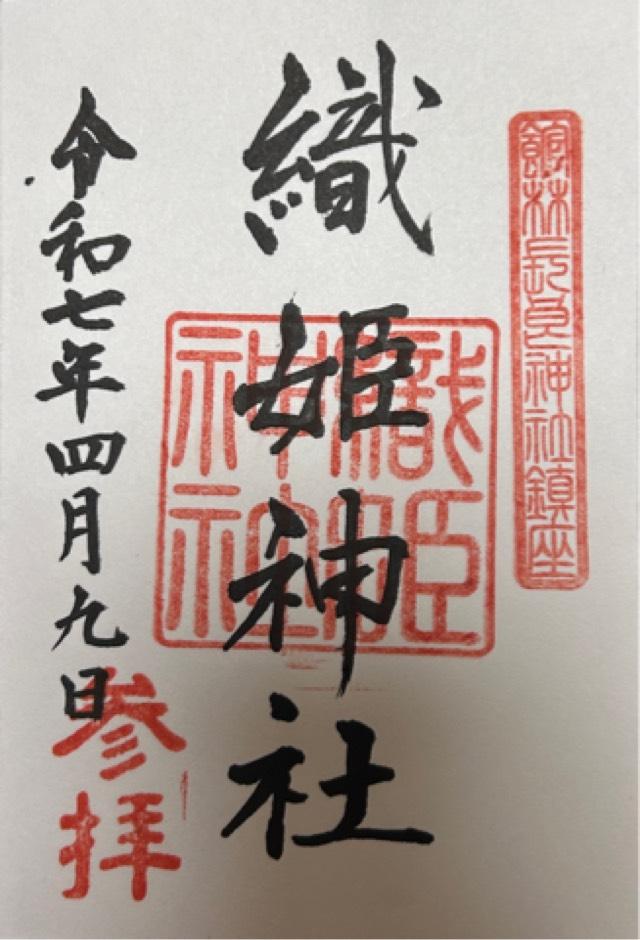 館林長良神社鎮座
織姫神社
織姫
神社
令和七年四月九日
参拝